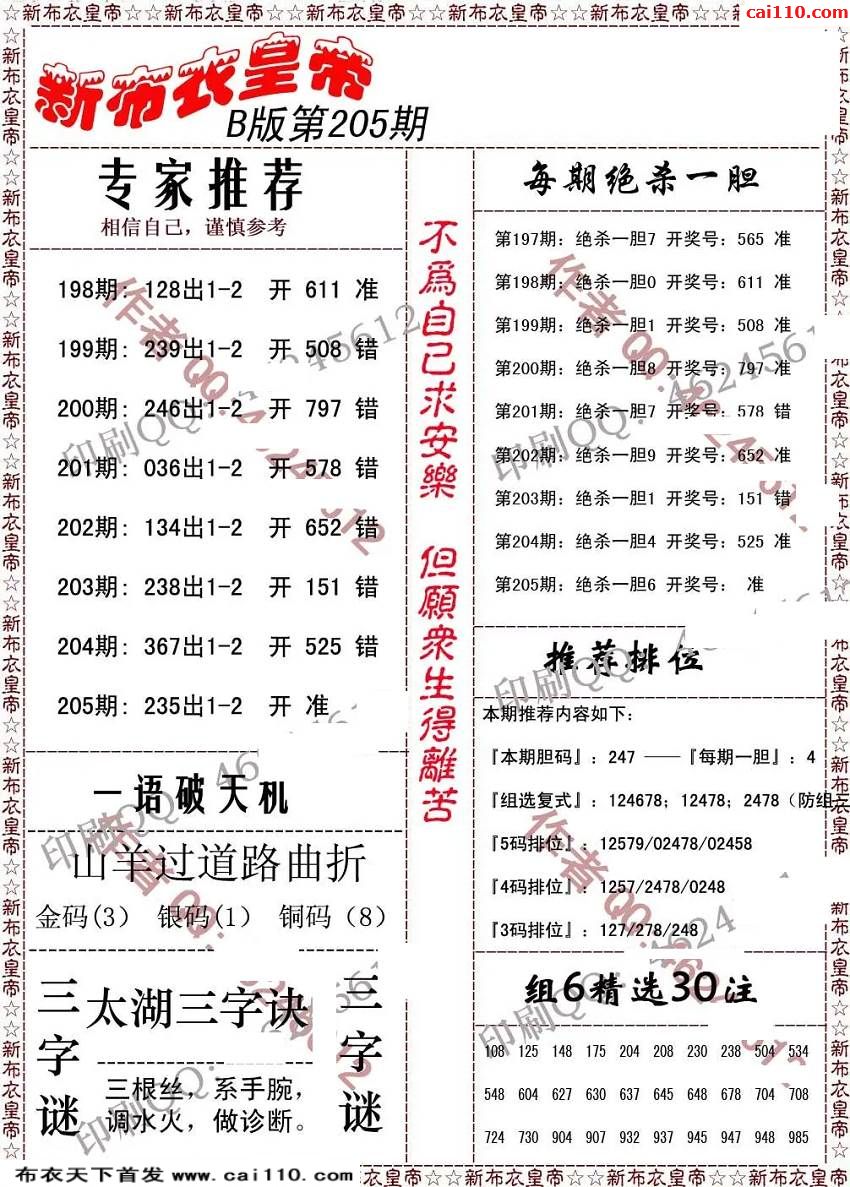 ☆☆新布衣皇帝☆☆新布衣皇帝☆☆新布衣皇帝☆☆新布衣皇帝☆☆新布衣皇帝☆☆新布衣皇帝
cai110.com
新布衣皇帝
B版第205期
专家推荐
相信自己，谨慎参考
198期: 128出1-2 开 611 准
199期: 239出1-2 开 508 错
200期: 246出1-2 开 797 错
201期: 036出1-2 开 578 错
202期: 134出1-2 开 652 错
203期: 238出1-2 开 151 错
204期: 367出1-2 开 525 错
205期: 235出1-2 开 准
一语破天机
山羊过道路曲折
金码(3) 银码(1) 铜码（8）
三字谜
太湖三字诀
三根丝，系手腕，
调水火，做诊断。
三字谜
不為自己求安樂 但願衆生得離苦
每期绝杀一胆
第197期: 绝杀一胆7 开奖号: 565 准
第198期: 绝杀一胆0 开奖号: 611 准
第199期: 绝杀一胆1 开奖号: 508 准
第200期: 绝杀一胆8 开奖号: 797 准
第201期: 绝杀一胆7 开奖号: 578 错
第202期: 绝杀一胆9 开奖号: 652 准
第203期: 绝杀一胆1 开奖号: 151 错
第204期: 绝杀一胆4 开奖号: 525 准
第205期: 绝杀一胆6 开奖号: 准
推荐排位
本期推荐内容如下:
『本期胆码』: 247 ——『每期一胆』: 4
『组选复式』: 124678; 12478; 2478（防组三
『5码排位』: 12579/02478/02458
『4码排位』: 1257/2478/0248
『3码排位』: 127/278/248
组6精选30注
108 125 148 175 204 208 230 238 504 534
548 604 627 630 637 645 648 678 704 708
724 730 904 907 932 937 945 947 948 985
布衣天下首发 www.cai110.com
衣皇帝☆☆新布衣皇帝☆☆新布衣皇帝☆☆新布衣皇帝☆